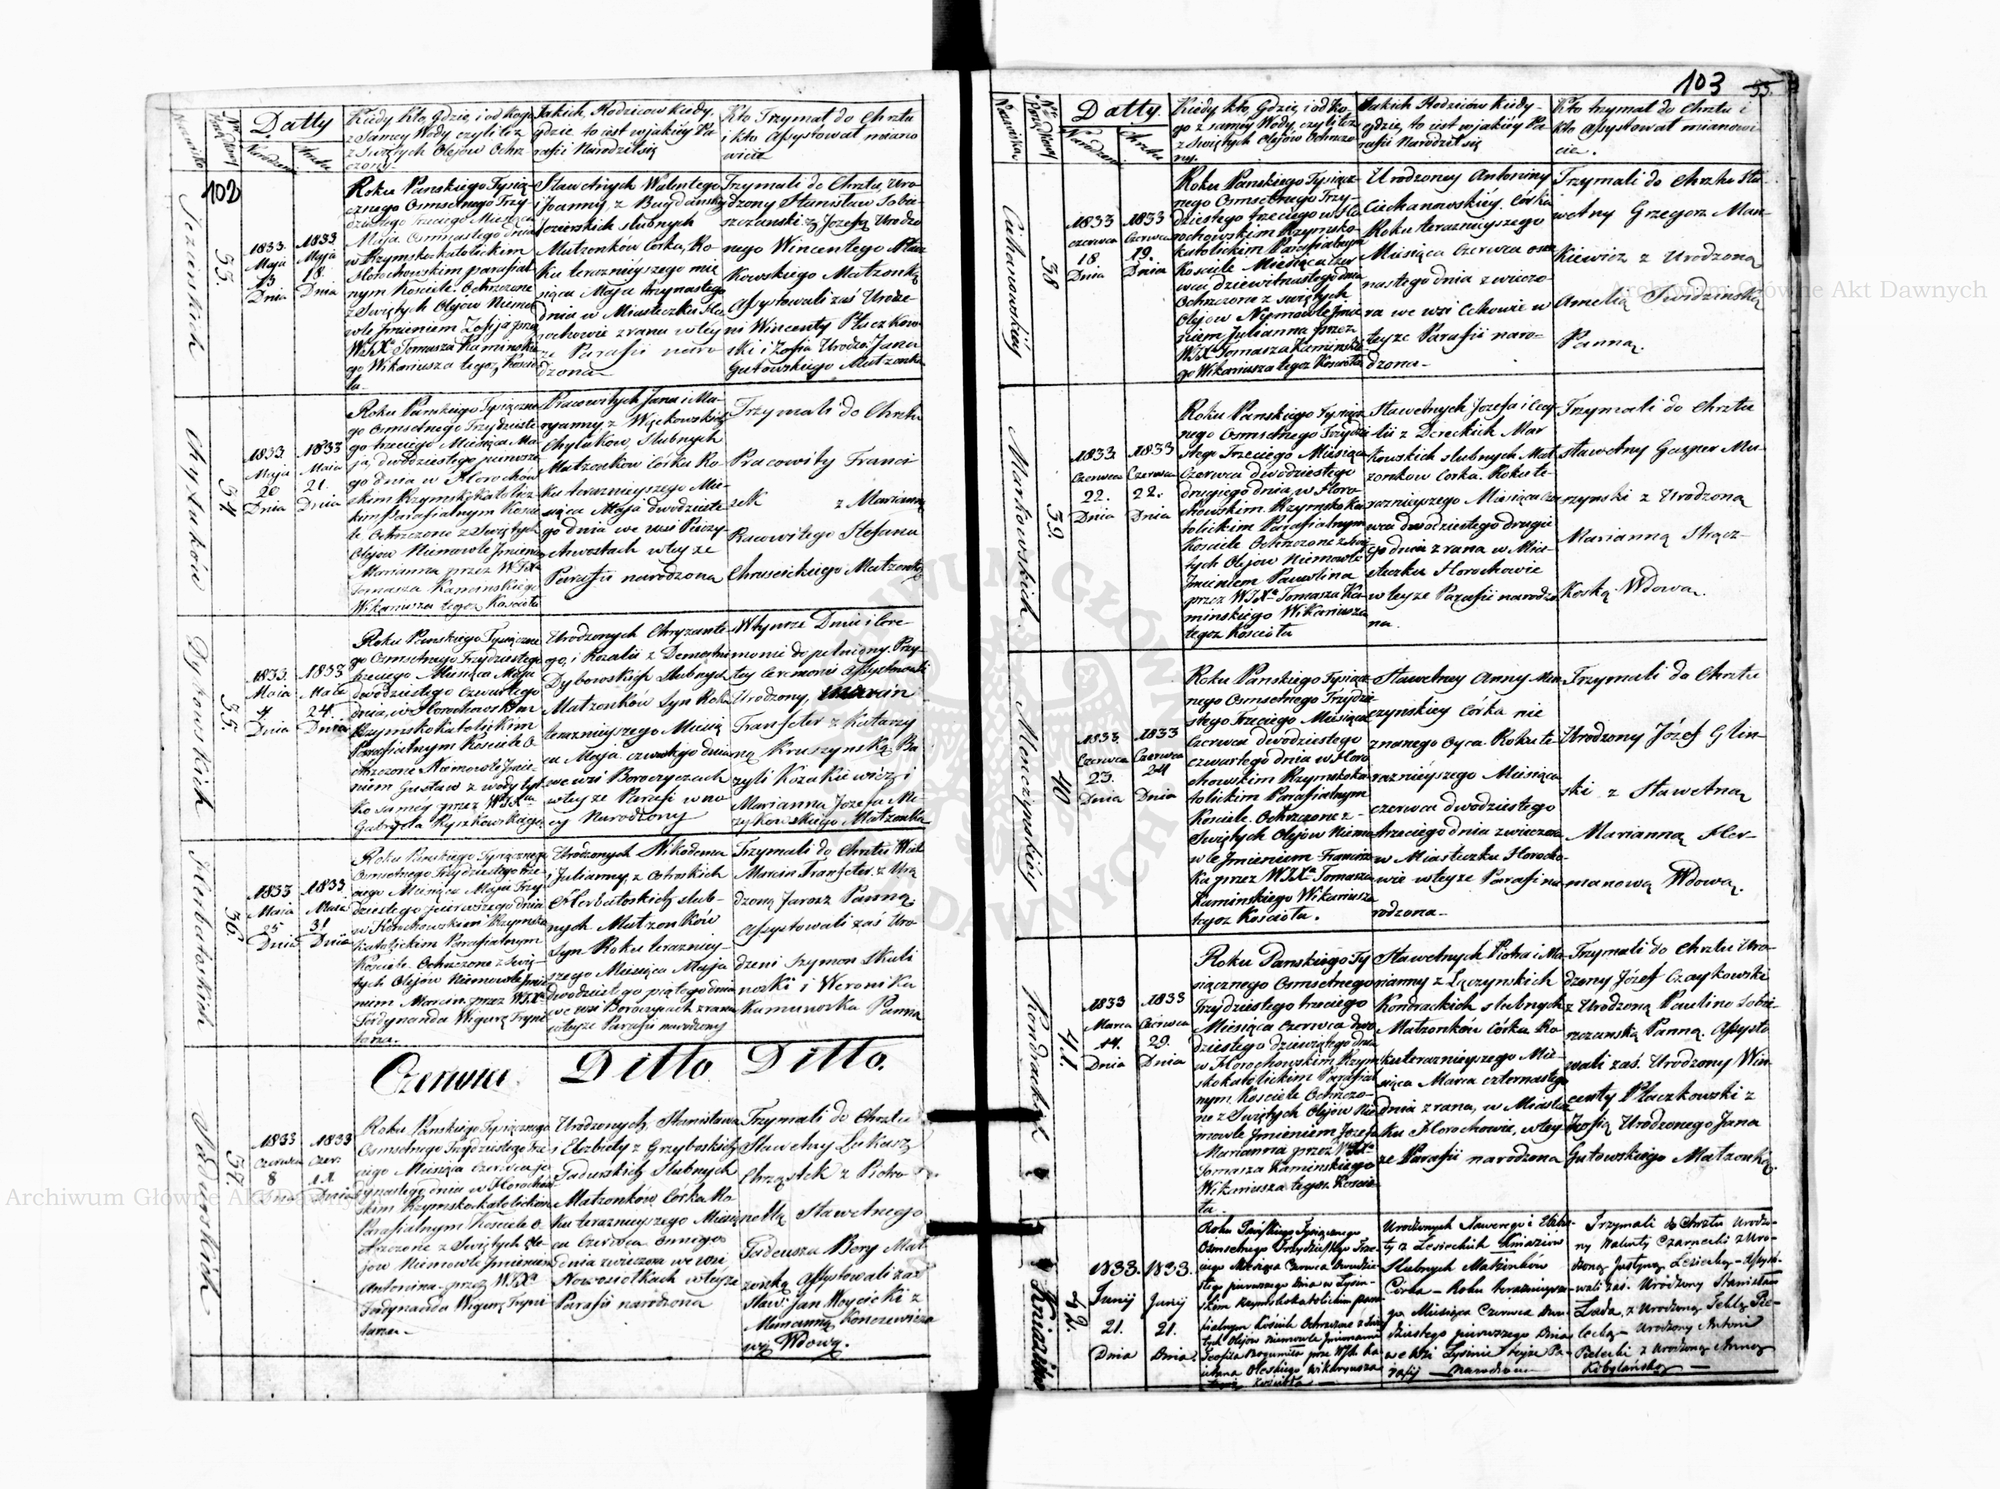 102
Nazwisko
Nro Porządkowy
Datty
Narodzenia
Chrztu
Kiedy kto, gdzie, i od kogo
z Samey Wody czyli też
z Swiętych Olejow Ochrz-
czony
Jakich, Rodzicow kiedy,
gdzie to iest w jakiey Pa-
rafii Narodził się
Kto Trzymał do Chrztu
i kto Assystował miano
wicie
Jezierskich
33.
1833.
Maja
13
Dnia
1833.
Maja
18.
Dnia
Roku Panskiego Tysią-
cznego Osmsetnego Trzy-
dziestego trzeciego Miesiąca
Maja Osmnastego dnia
w Rzymsko-katolickim
Horochowskim parafial-
nym Kosciele. Ochrzczone
z Swiętych Olejow Niemo-
wle Jmieniem Zofija prze
WJXa Tomasza Kaminskie
go Wikariusza tegoz Koscio
ła
Sławetnych Walentego
i Joanny z
Jezierskich slubnych
Małzonkow Corka, Ro-
ku teraznieyszego mie
siąca Maja trzynastego
dnia w Miasteczku Ho
rochowie z rana w tey
ze Parafii naro
dzona
Trzymali do Chrztu, Uro
dzony Stanisław Sobie-
szczanski z Jozefą Urodzo
nego Wincentego Płacz
kowskiego Małzonką
Assystowali zaś Urodze-
ni Wincenty Płaczkow-
ski i Zofia Urodzo: Jana
Gutowskiego Małzonka
Chylukow
34.
1833.
Maja
20
Dnia
1833.
Maia
21.
Dnia
Roku Panskiego Tysiączne
go Osmsetnego Trzydzieste
go trzeciego Miesiąca Ma
ja, dwodziestego pierwsze
go dnia w Horochow
skim Rzymskokatolic
kim Parafialnym Koscie
le Ochrzczone z Swiętych
Olejow Niemowle Jmieniem
Marianna przez WJXa
Tomasza Kaminskiego
Wikariusza tegoz Koscioła
Pracowitych Jana i Ma-
ryanny z Więckowskich
Chylukow Slubnych
Małzonkow Córka Ro-
ku teraznieyszego Mie-
siąca Maja dwodzieste
go dnia we wsi
w teyze
Parafii narodzona
Trzymali do Chrztu
Pracowity Franci
szek z Marianną
Racowitego Stefana
Małzonką
Dybowskich
35.
1833.
Maia
4
Dnia
1833
Maia
24.
Dnia
Roku Panskiego Tysiączne
go Osmsetnego Trzydziestego
trzeciego Miesiąca Maja
dwodziestego czwartego
dnia, w Horochowskim
Rzymskokatolickim
Parafialnym Kosciele O-
chrzczone Niemowle Jmie-
niem Gustaw z wody tyl-
ko samey przez WJXa
Gabryela Ryszkowskiego
Urodzonych Chryzante-
go, i Rozalii z
Dybowskich Slubnych
Małzonkow Syn Roku
teraznieyszego Miesią
ca Maja czwartego dnia
we wsi Boroczyczach
w teyze Parafi w no
cy Narodzony
Wtymze Dniu i Cere-
monie do pełniony. Przy-
tey Ceremonii Assystowali
Urodzony, Marcin
Transfeter z Katarzy
ną Kruszynską
Kozakiewicz i
Marianna Jozefa
Małzonka
Herbatoskich
36.
1833
Maia
25
Dnia
1833
Maia
31
Dnia
Roku Panskiego Tysiącznego
Osmsetnego Trzydziestego trze
ciego Miesiąca Maja Trzy
dziestego pierwszego dnia
w Horochowskim Rzymsko
katolickim Parafialnym
Kosciele. Ochrzczone z Swię-
tych Olejow Niemowle Jmie
niem Marcin przez WJXa
Ferdynanda Wigurę Tryni
tarza.
Urodzonych Nikodema
i Julianny, z Ostroskich
Herbatoskich, slub-
nych Małzonkow
Syn Roku terazniey-
szego Miesiąca Maja
dwodziestego piątego dnia
we wsi Boroczycach z rana
w teyze Parafii narodzony
Trzymali do Chrztu Wiel
Marcin Transfeter, z Uro
dzoną Jarosz Panną,
Assystowali zaś Uro
dzeni Szymon Skuli
noski i Weronika
Kaminoska Panna
Czerwiec Ditto Ditto.
37.
1833
Czerwca
8
Dnia
1833
Czer:
11.
Dnia
Roku Panskiego Tysiącznego
Osmsetnego Trzydziestego Trze
ciego Miesiąca Czerwca je
dynastego dnia w Horochow
skim Rzymskokatolickim
Parafialnym Kosciele O-
chrzczone z Swiętych Ole
jow Niemowle Jmieniem
Antonina przez WJXa
Ferdynanda Wigurę Tryni
tarza
Urodzonych, Stanisława
i Elzbiety z Grzyboskich
Slubnych
Małzonków Córka Ro
ku teraznieyszego Miesią
ca Czerwca osmego
dnia z wieczora we wsi
Nowosiołkach w teyze
Parafii narodzona
Trzymali do Chrztu
Sławetny Łukasz
Chrząstek z Pietro
nellą Sławetnego
Tadeusza Bery Mał
zonką Assystowali zaś
Sław: Jan Woycicki z
Marianną
Wdową.
103
55.
Nazwiska
Nro Porządkowy
Datty.
Narodzenia
Chrztu
Kiedy kto, gdzie, i od ko-
go z samey Wody, czyli też
z Swiętych Olejów Ochrzczo
ny.
Jakich Rodziców kiedy-
gdzie, to iest w jakiey Pa
rafii Narodził się
Kto trzymał do Chrztu i
kto Assystował mianowi
cie.
Ciechanowskiey
38
1833
Czerwca
18.
Dnia
1833
Czerwca
19.
Dnia
Roku Panskiego Tysiącz-
nego Osmsetnego Trzy-
dziestego trzeciego w Ho
rochowskim Rzymsko-
katolickim Parafialnym
Kosciele Miesiąca Czer
wca dziewietnastego dnia
Ochrzczone z swiętych
Olejow Niemowle Jmie
niem Julianna przez
WJXa Tomasza Kaminskie
go Wikariusza tegoz Koscioła
Urodzoney Antoniny
Ciechanowskiey. Córka
Roku teraznieyszego
Miesiąca Czerwca osm
nastego dnia z wieczo
ra we wsi Cehowie w
teyze Parafii naro-
dzona.
Trzymali do Chrztu Sła
wetny Grzegorz Man-
kiewicz z Urodzoną
Amelią Swidzinską
Panną.
Markowskich.
39.
1833
Czerwca
22.
Dnia
1833
Czerwca
22.
Dnia
Roku Panskiego Tysiącz
nego Osmsetnego Trzydzie
stego Trzeciego Miesiąca
Czerwca dwodziestego
drugiego dnia, w Horo-
chowskim Rzymskoka
tolickim Parafialnym
Kosciele Ochrzczone z Swię
tych Olejow Niemowle
Jmieniem Pawlina
przez WJXa Tomasza Ka
minskiego Wikariusza
tegoz Koscioła
Sławetnych Jozefa i Cecy
lii z Dereckich Mar
kowskich slubnych Mał
zonkow Corka. Roku te-
raznieyszego Miesiąca Czer
wca dwodziestego drugie
go dnia z rana w Mia-
steczku Horochowie
w teyze Parafii narodzo
na.
Trzymali do Chrztu
sławetny Gasper Mu-
rzynski z Urodzoną
Marianną Skącz-
koską Wdową.
Menczynskiey
40
1833
Czerwca
23.
Dnia
1833
Czerwca
24
Dnia
Roku Panskiego Tysiącz
nego Osmsetnego Trzydzie
stego Trzeciego Miesiąca
Czerwca dwodziestego
czwartego dnia w Horo
chowskim Rzymskoka
tolickim Parafialnym
Kosciele. Ochrzczone z-
Swiętych Olejów Niemo
wle Jmieniem Francisz
ka przez WJXa Tomasza
Kaminskiego Wikariusza
tegoz Koscioła.
Sławetney Anny Men
czynskiey Córka nie
znanego Oyca. Roku te
raznieyszego Miesiąca
czerwca dwodziestego
trzeciego dnia z wieczora
w Miasteczku Horocho-
wie w teyze Parafii na
rodzona
Trzymali do Chrztu
Urodzony Józef Glin-
ski z Sławetną
Marianną Her-
manową Wdową.
Kondrackich
41.
1833
Marca
14.
Dnia
1833
Czerwca
29.
Dnia
Roku Panskiego Ty
siącznego Osmsetnego
Trzydziestego trzeciego
Miesiąca Czerwca dwo
dziestego dziewiątego dnia
w Horochowskim Rzym
skokatolickim Parafial
nym Kosciele Ochrzczo-
ne z Swiętych Olejów Nie
mowle Jmieniem Jozefa
Marianna przez WJXa
Tomasza Kaminskiego
Wikariusza tegoz Koscio-
ła
Sławetnych Piotra i Ma-
rianny z Łączynskich
Kondrackich slubnych
Małzonków Corka Ro
ku teraznieyszego Mie-
siąca Marca czternastego
dnia z rana, w Miastecz
ku Horochowie, w tey
ze Parafii narodzona
Trzymali do Chrztu Uro-
dzony Józef Czaykowski
z Urodzoną Pauliną Sobie
szczanską Panną. Assysto
wali zaś. Urodzony Win-
centy Płaczkowski z
Zofią Urodzonego Jana
Gutowskiego Małzonką.
Kniaziów
42.
1833.
Junij
21.
Dnia
1833.
Junij
21.
Dnia.
Roku Pańskiego Tysiącznego
Osmsetnego Trzydziestego Trze
ciego Miesiąca Czerwca Dwudzie
stego pierwszego Dnia w Łysin-
skim Rzymskokatolickim para
fialnym Kosciele Ochrzczone z Swię
tych Olejow Niemowle Jmieniem
Teofila Bogumiła prze WJXa Ka
jetana Oleskiego Wikaryusza
tegoż Kościoła
Urodzonych Xawerego i Elżbie-
ty z Lesieckich Kniaziow
Slubnych Małżonkow
Córka - Roku teraznieysze-
go Miesiąca Czerwca Dwu-
dziestego pierwszego Dnia
we Wsi Łysinie teyże Pa-
rafij Narodzona
Trzymali do Chrztu Urodzo-
ny Walenty Czarnecki z Uro-
dzoną Justyną Lesiecką - Assysto-
wali zaś. Urodzony Stanisław
Łada, z Urodzoną Teklą Pie-
lecką - Urodzony Antoni
Pielecki z Urodzoną Anną
Kobylańską
Archiwum Główne Akt Dawnych
Archiwum Główne Akt Dawnych
ARCHIWUM GŁÓWNE AKT DAWNYCH